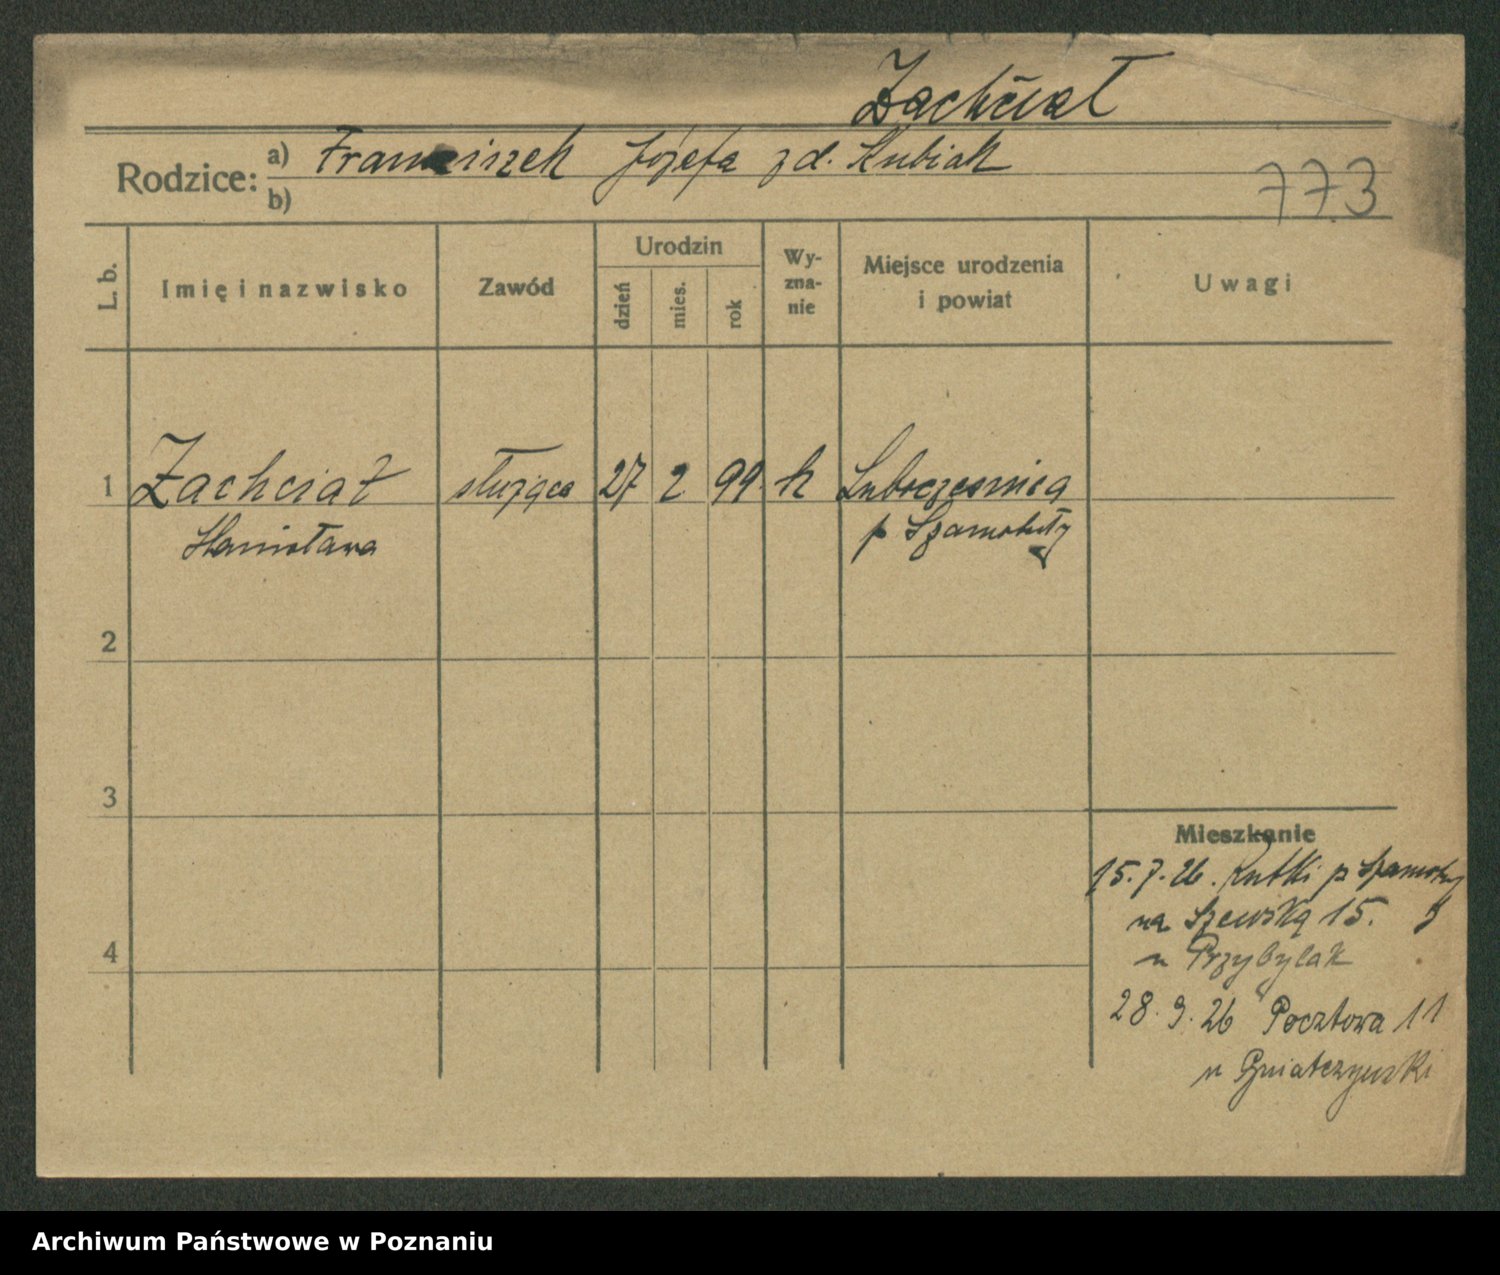 Zachciał
Rodzice: a) Franciszek Józefa zd. Kubiak
b)
773
L. b.
Imię i nazwisko
Zawód
Urodzin
dzień
mies.
rok
Wy-
zna-
nie
Miejsce urodzenia
i powiat
Uwagi
1 Zachciał służąca 27 2 99 k Lubosześnica
Stanisława p Szamotuły
2
3
4
Mieszkanie
15.7.26. Rutki p Szamotuły
na Szewską 15.
u Przybylak
28.9.26 Pocztowa 11
u
Archiwum Państwowe w Poznaniu